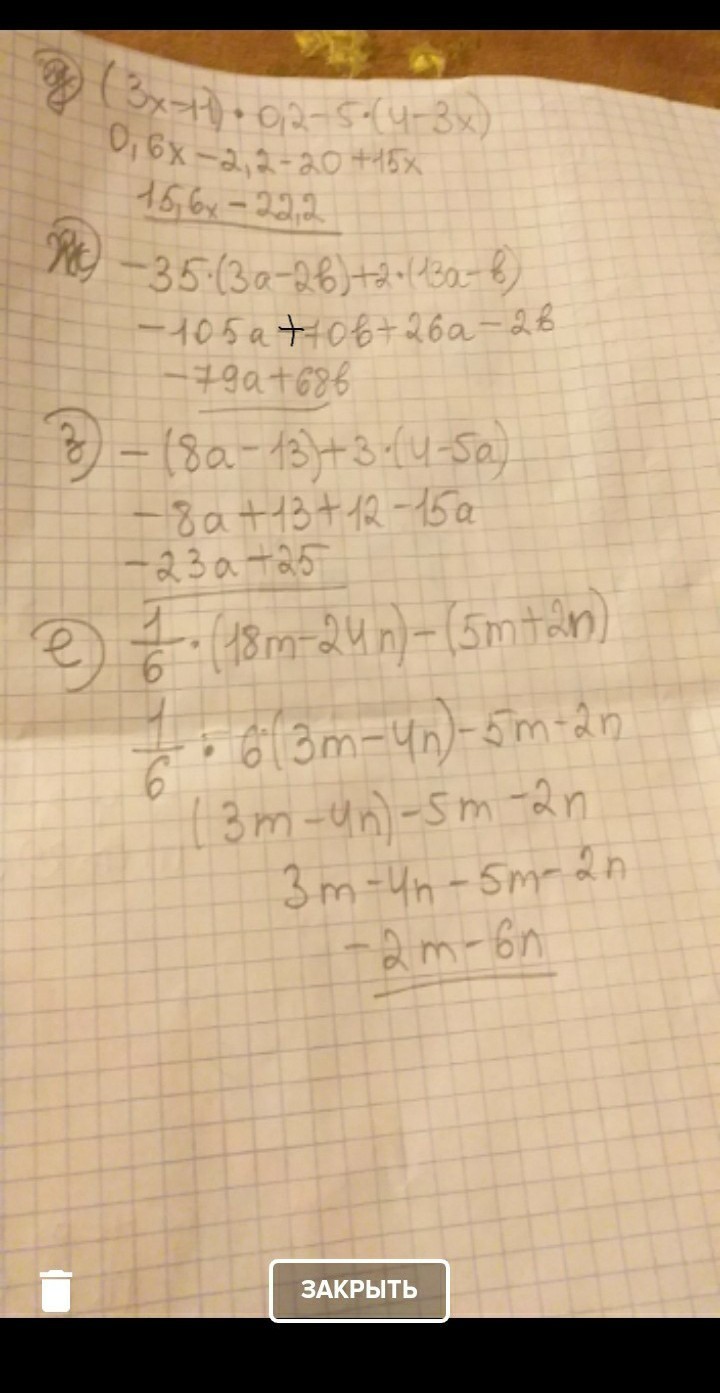 д) (3x-11)·0,2-5·(4-3x)
0,6x-2,2-20+15x
15,6x-22,2
ж) -35·(3a-2b)+2·(13a-b)
-105a+70b+26a-2b
-79a+68b
з) -(8a-13)+3·(4-5a)
-8a+13+12-15a
-23a+25
е) 1/6·(18m-24n)-(5m+2n)
1/6·6(3m-4n)-5m-2n
(3m-4n)-5m-2n
3m-4n-5m-2n
-2m-6n
ЗАКРЫТЬ